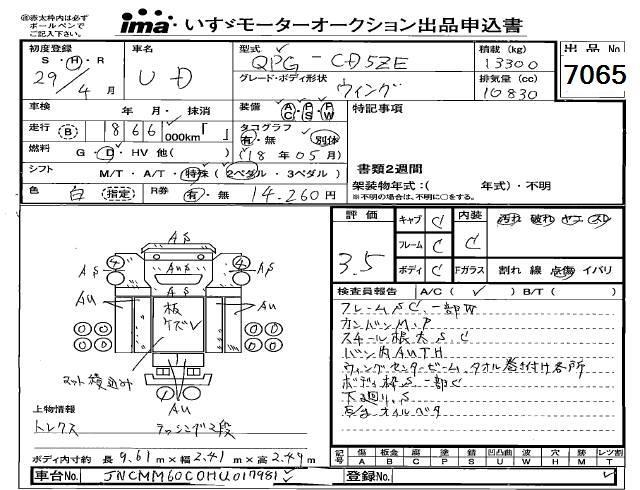 ㊟太枠内は必ず
ボールペンで
ご記入下さい。
ima いすゞモーターオークション出品申込書
初度登録
S・H・R
29/4月
車名
UD
型式
QPG-CD5ZE
グレード・ボディ形状
ウィング
積載(kg)
13300
排気量(cc)
10830
出品No
7065
車検 年 月・抹消
装備 AC PS PW
特記事項
走行 B 1866 000km「 」
タコグラフ
有・無 別体
(18年05月)
燃料 G・D・HV 他( )
書類2週間
シフト M/T・A/T・特殊(2ペダル・3ペダル)
架装物年式:( 年式)・不明
※不明の場合は、不明に○をする。
色 白(指定) R券 有・無 14,260円
評価 3.5
キャブ C
フレーム C
ボディ C
内装 C
汚れ 破れ ヤニ スレ
Fガラス 割れ 線 点傷 イバリ
検査員報告 A/C( ✓ ) B/T( )
AS
AS
AS
④
④
AuS
AS
AU
AU
板
ケズレ
マット積込み
AU
フレームSC、一部W
カンバンM.P
スチール根太S.C
バン内AUTH
ウィングセンタービーム、タオル巻き付け各所
ボディ枠S一部C
下廻り.S
上物情報
トレクス ラッシング2段
ボディ内寸約 長9.61m×幅2.41m×高2.49m
記号
傷 板金 腐 塗 錆 凹凸曲 凹 交換 レツ割
A B C P S U W M T
車台No. JNCMM60C0HU017981
登録No.